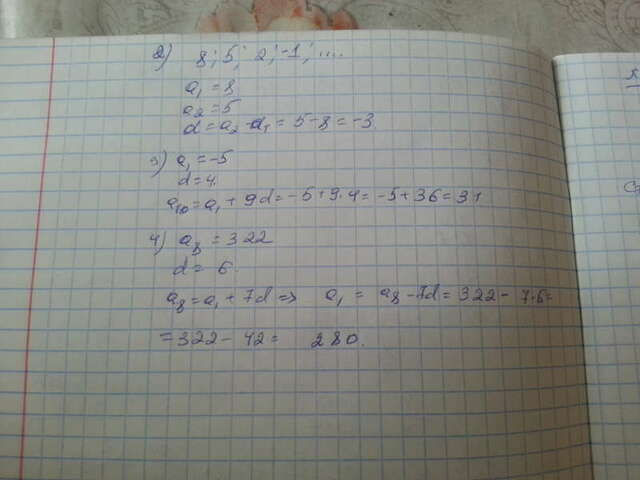 2) 8; 5; 2; -1; ....
a₁ = 8
a₂ = 5
d = a₂ - a₁ = 5 - 8 = -3
3) a₁ = -5
d = 4.
a₁₀ = a₁ + 9d = -5 + 9·4 = -5 + 36 = 31
4) a₈ = 322
d = 6.
a₈ = a₁ + 7d => a₁ = a₈ - 7d = 322 - 7·6 =
= 322 - 42 = 280.